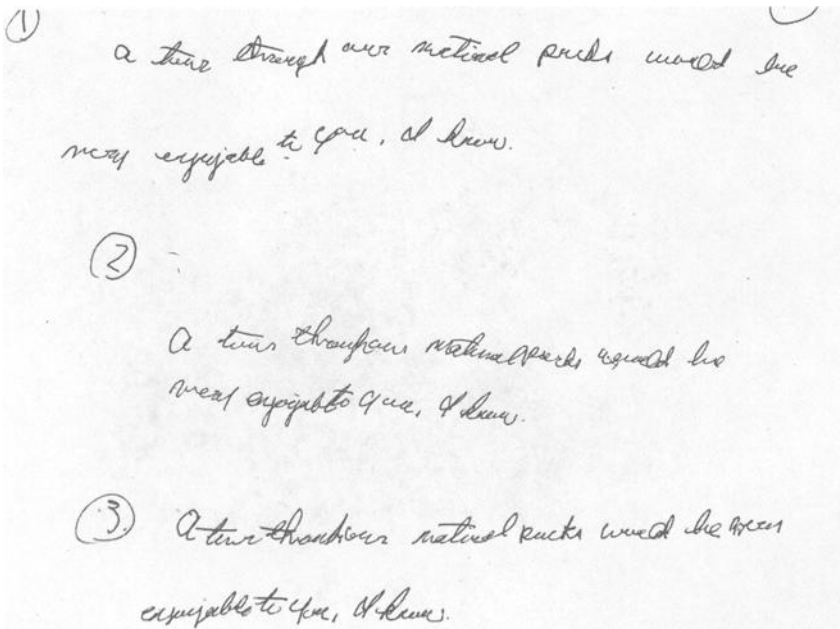 ①
a tour through our national parks would be
very enjoyable to you, I know.
②
A tour through our national parks would be
very enjoyable to you, I know.
③ A tour through our national parks would be very
enjoyable to you, I know.